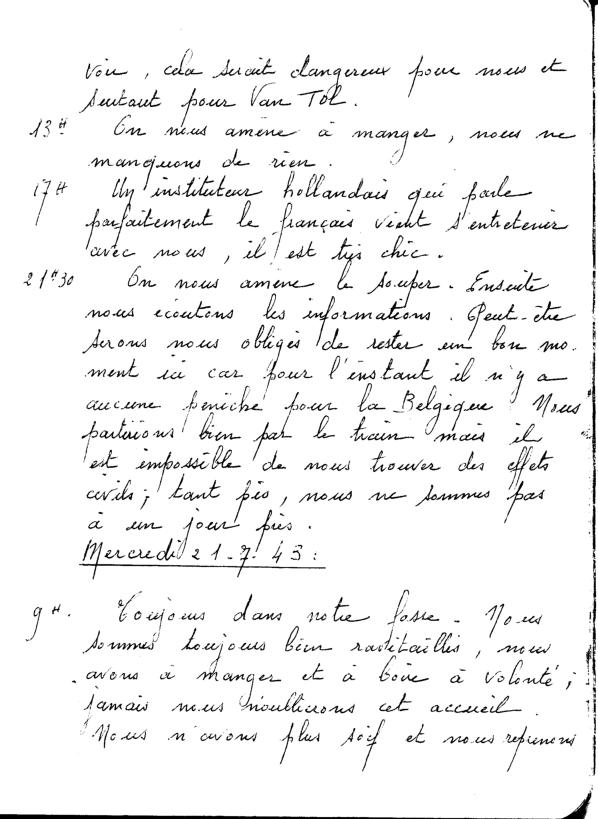 voir, cela serait dangereux pour nous et
surtout pour Van Tol.
13H On nous amène à manger, nous ne
manquons de rien.
17H Un instituteur hollandais qui parle
parfaitement le français vient s'entretenir
avec nous, il est très chic.
21H30 On nous amène le souper. Ensuite
nous écoutons les informations. Peut-être
serons nous obligés de rester un bon mo-
ment ici car pour l'instant il n'y a
aucune péniche pour la Belgique. Nous
partirions bien par le train mais il
est impossible de nous trouver des effets
civils; tant pis, nous ne sommes pas
à un jour près.
Mercredi 21-7-43:
9H. Toujours dans notre fosse. Nous
sommes toujours bien ravitaillés, nous
avons à manger et à boire à volonté;
jamais nous n'oublierons cet accueil.
Nous n'avons plus soif et nous reprenons